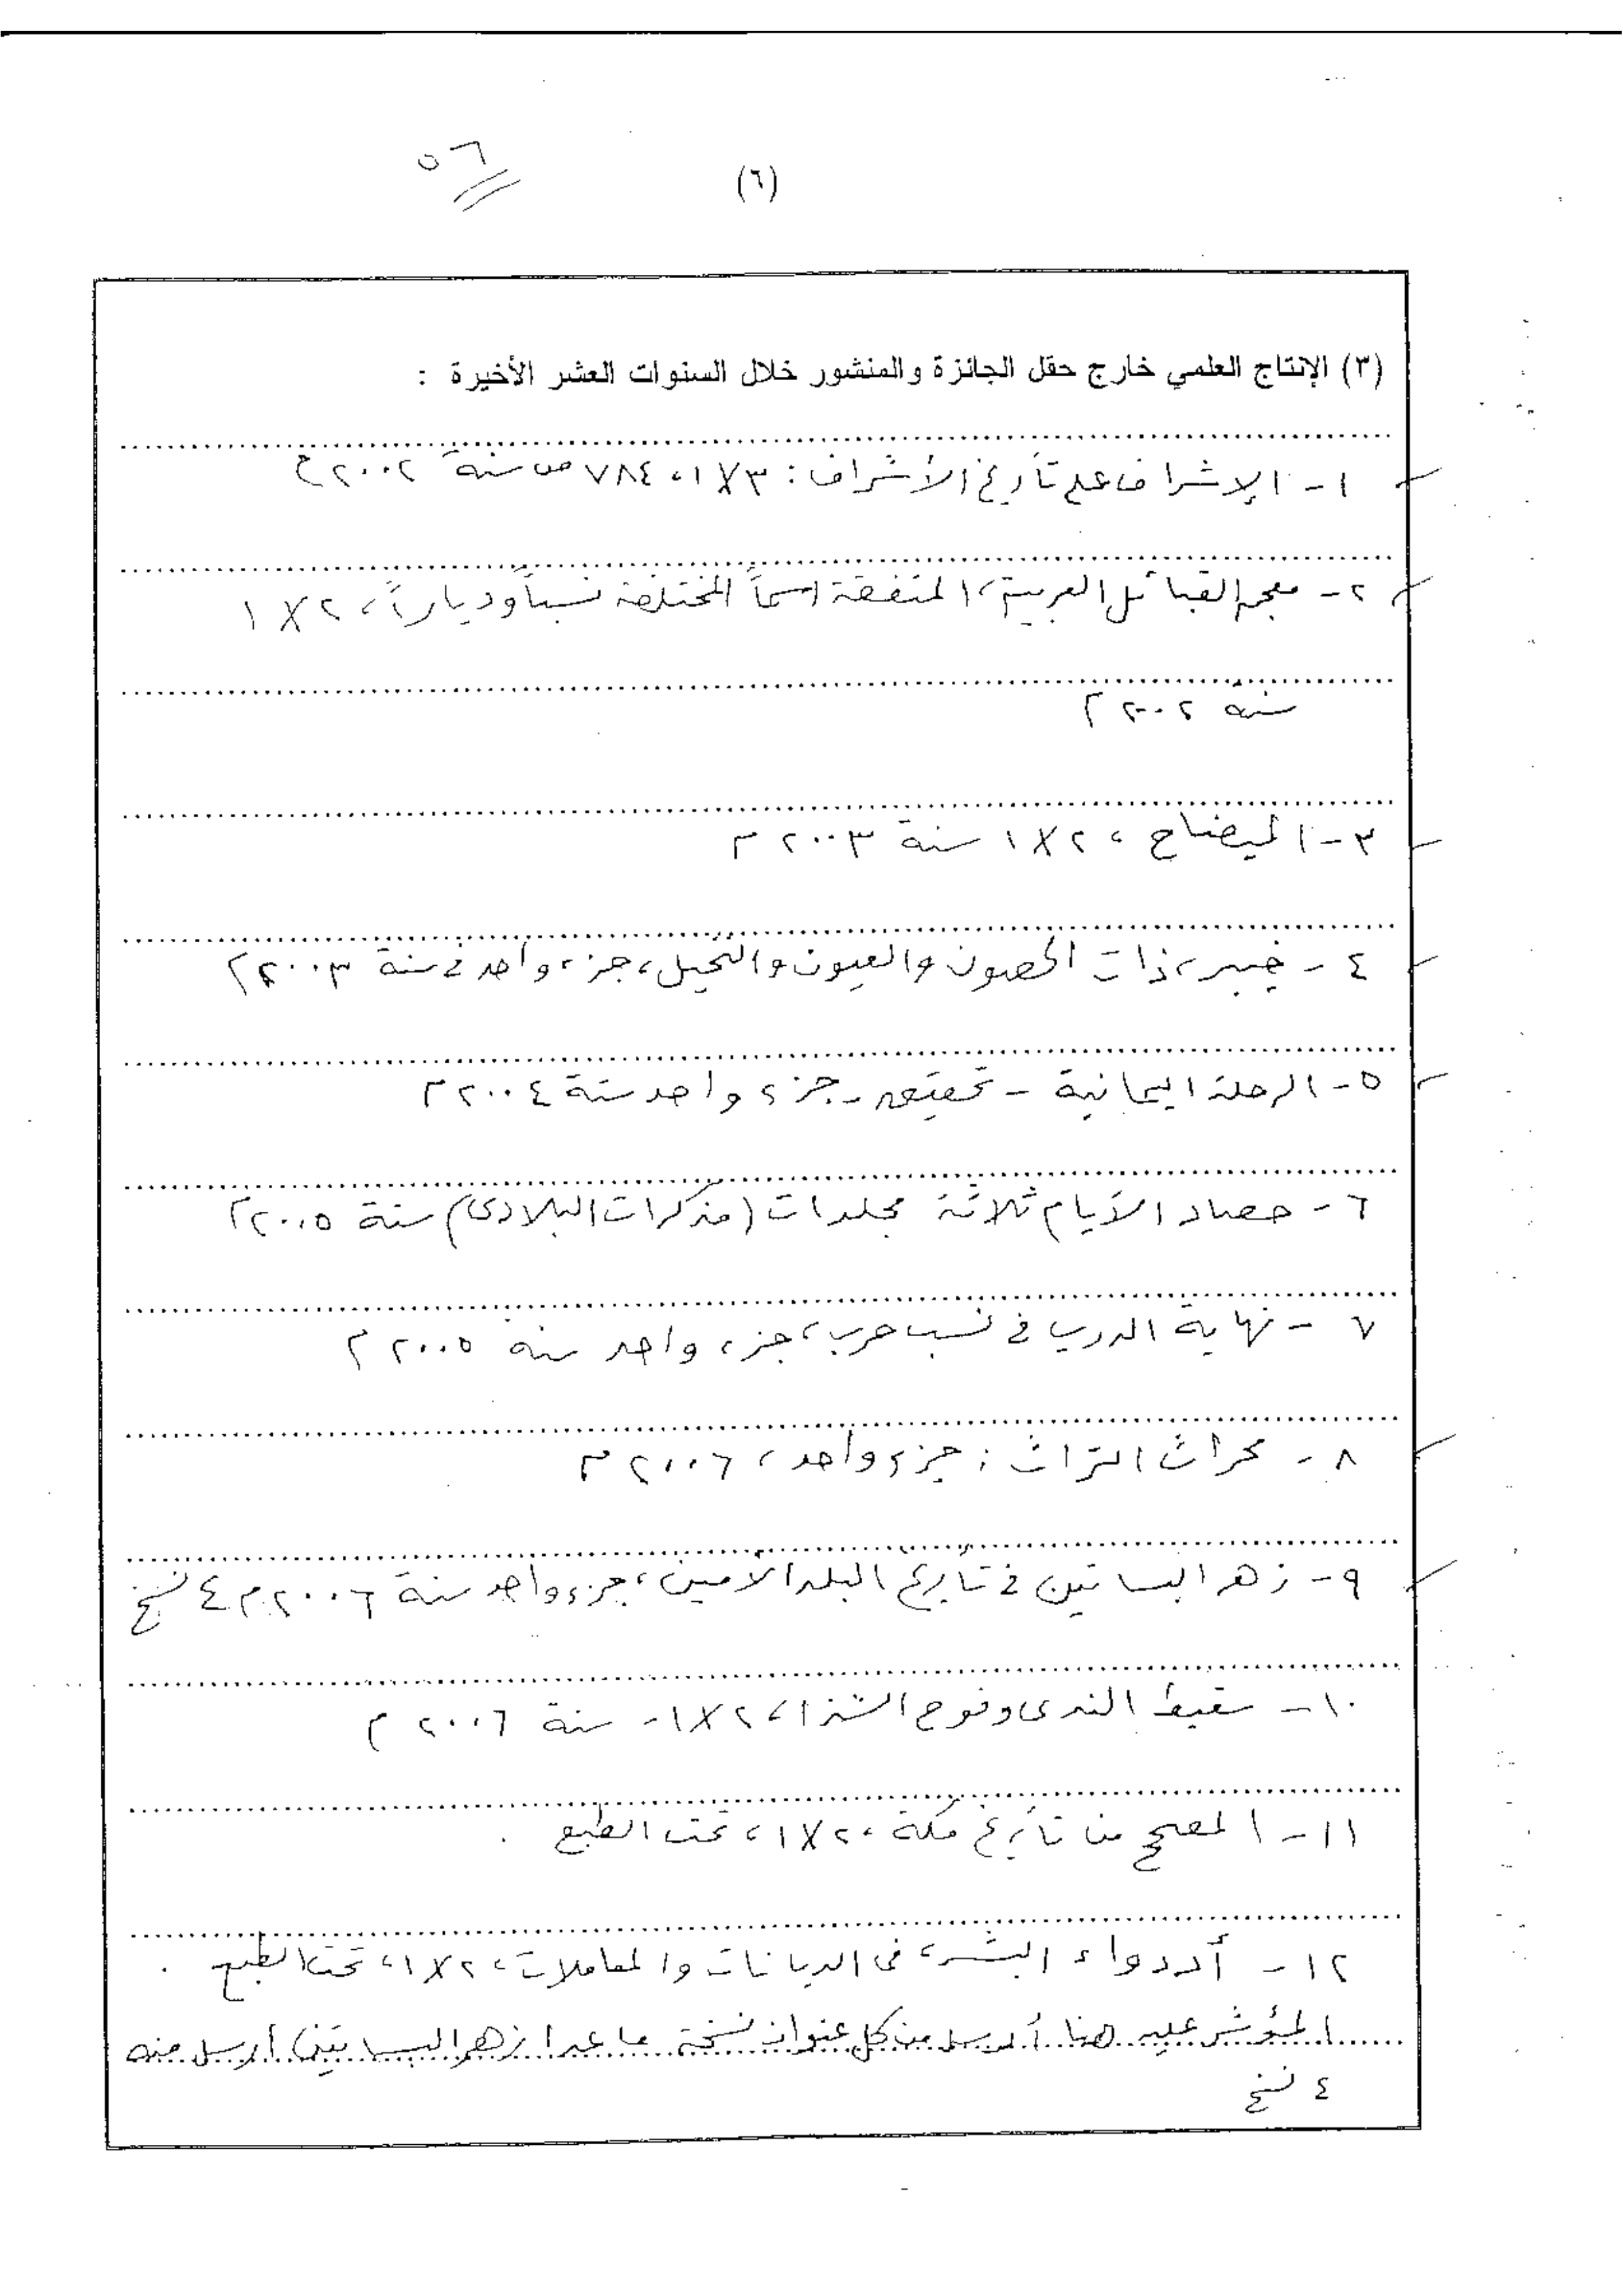 ٥٦
(٦)
(٣) الإنتاج العلمي خارج حقل الجائزة والمنشور خلال السنوات العشر الأخيرة :
١- الإشراف على تأريخ الأشراف : ١/٣، ٧٨٤ ص سنة ٢٠٠٢م
٢- معجم القبائل العربية، المتفقة اسماً المختلفة نسباً ودياراً، ١/٢
سنة ٢٠٠٢م
٣- الميضاح، ١/٢ سنة ٢٠٠٣م
٤- خيبر، ذات الحصون والعيون والنخيل، جزء واحد في سنة ٢٠٠٣م
٥- الرحلة اليمانية - تحقيق - جزء واحد سنة ٢٠٠٤م
٦- حصاد الأيام ثلاثة مجلدات (مذكرات البلادي) سنة ٢٠٠٥م
٧- نهاية الدرب في نسب حرب، جزء واحد سنة ٢٠٠٥م
٨- محراث التراث : جزء واحد، ٢٠٠٦م
٩- زهر البساتين في تأريخ البلد الأمين، جزء واحد سنة ٢٠٠٦م ٤ نسخ
١٠- سقيط الندى وفوح الشذا، ١/٢. سنة ٢٠٠٦م
١١- المصحح من تأريخ مكة، ١/٢، تحت الطبع .
١٢- أدواء البشر، في الديانات والمعاملات، ١/٢، تحت الطبع .
المؤشر عليه هنا أرسل من كل عنوان نسخة ما عدا زهر البساتين أرسل منه
٤ نسخ